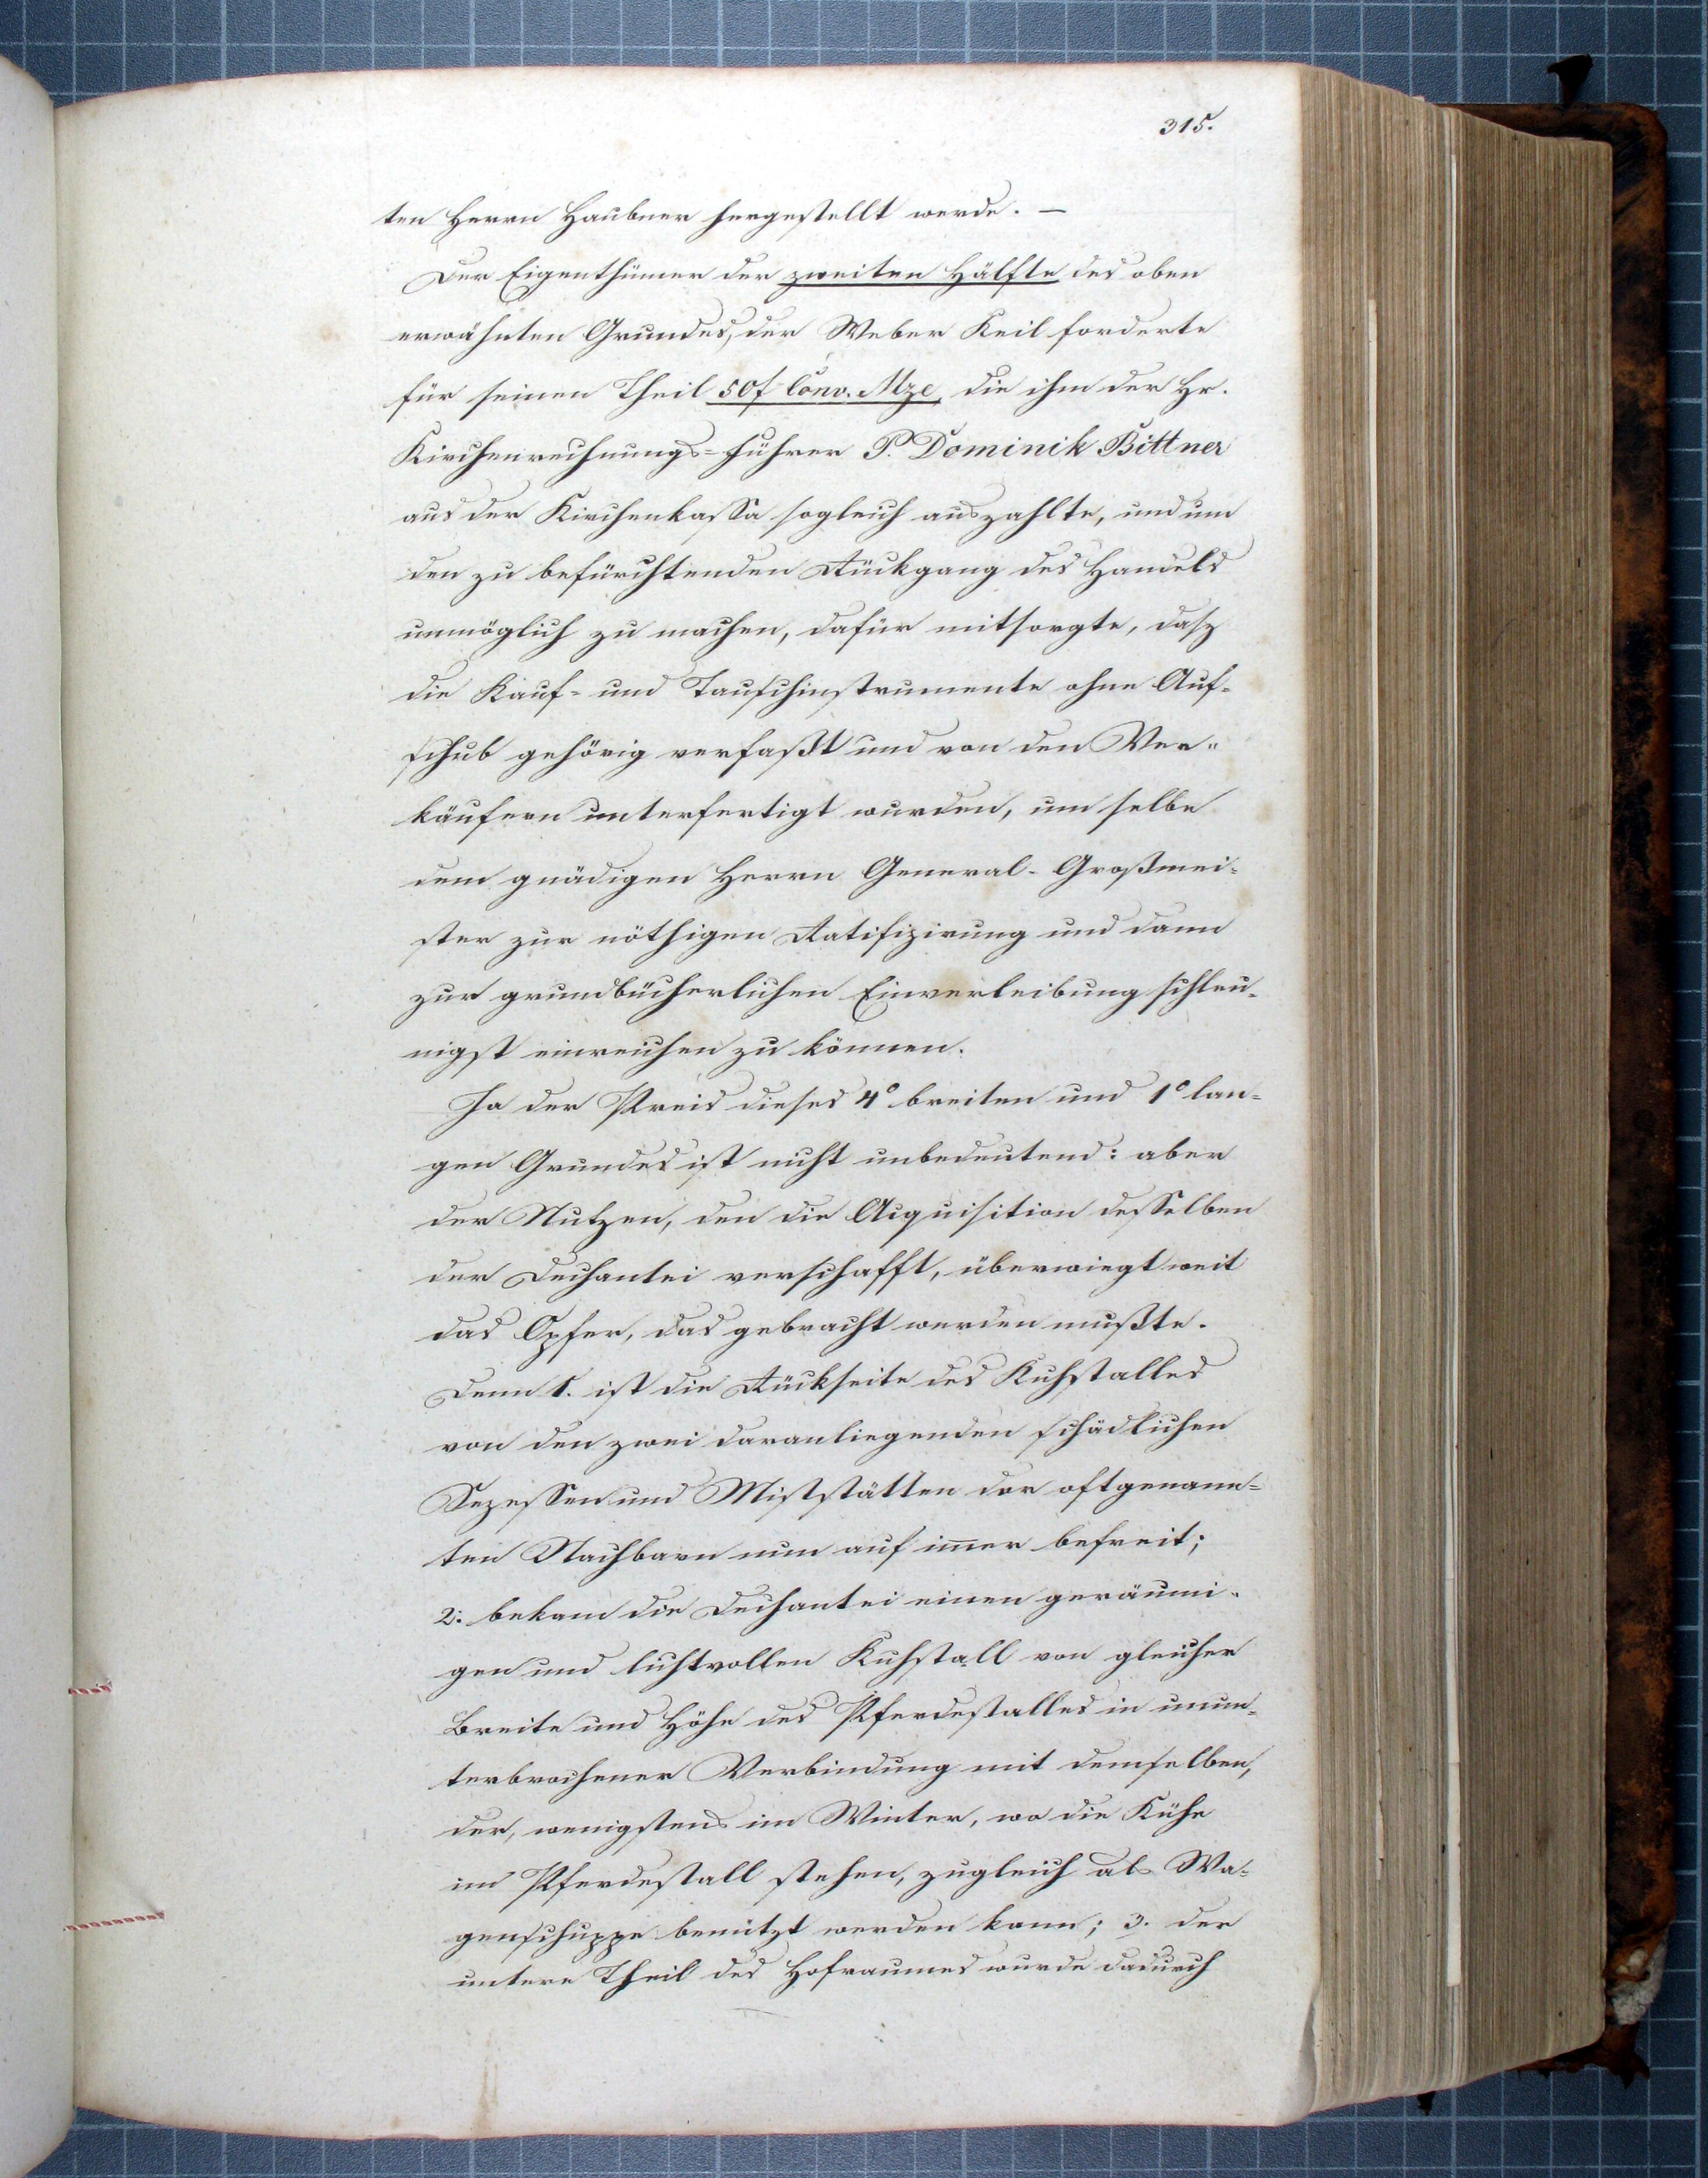 315.
ten Herrn Haubner hergestellt werde. —
Der Eigenthümer der zweiten Hälfte des oben
erwähnten Grundes, der Weber Keil forderte
für seinen Theil 50f Conv. Mze, die ihm der Hr.
Kirchenrechnungs-Führer P. Dominik Bittner
aus der Kirchenkassa sogleich auszahlte, und um
den zu befürchtenden Rückgang des Handels
unmöglich zu machen, dafür mitsorgte, dasz
die Kauf- und Tauschinstrumente ohne Auf-
schub gehörig verfaßt und von den Ver-
käufern unterfertigt wurden, um selbe
dem gnädigen Herrn General-Großmei-
ster zur nöthigen Ratifizirung und dann
zur grundbücherlichen Einverleibung schleu-
nigst einreichen zu können.
Ja der Preis dieses 4° breiten und 1° lan-
gen Grundes ist nicht unbedeutend: aber
der Nutzen, den die Acquisition desselben
der Dechantei verschafft, überwiegt weit
das Opfer, das gebracht werden mußte.
Denn 1. ist die Rückseite des Kuhstalles
von den zwei daranliegenden schädlichen
Sezessen und Miststätten der oftgenann-
ten Nachbarn nun auf im̅er befreit;
2. bekam die Dechantei einen geräumi-
gen und lichtvollen Kuhstall von gleicher
Breite und Höhe des Pferdestalles in unun-
terbrochener Verbindung mit demselben,
der, wenigstens im Winter, wo die Kühe
im Pferdestall stehen, zugleich als Wa-
genschuppe benützt werden kann; 3. der
untere Theil des Hofraumes wurde dadurch